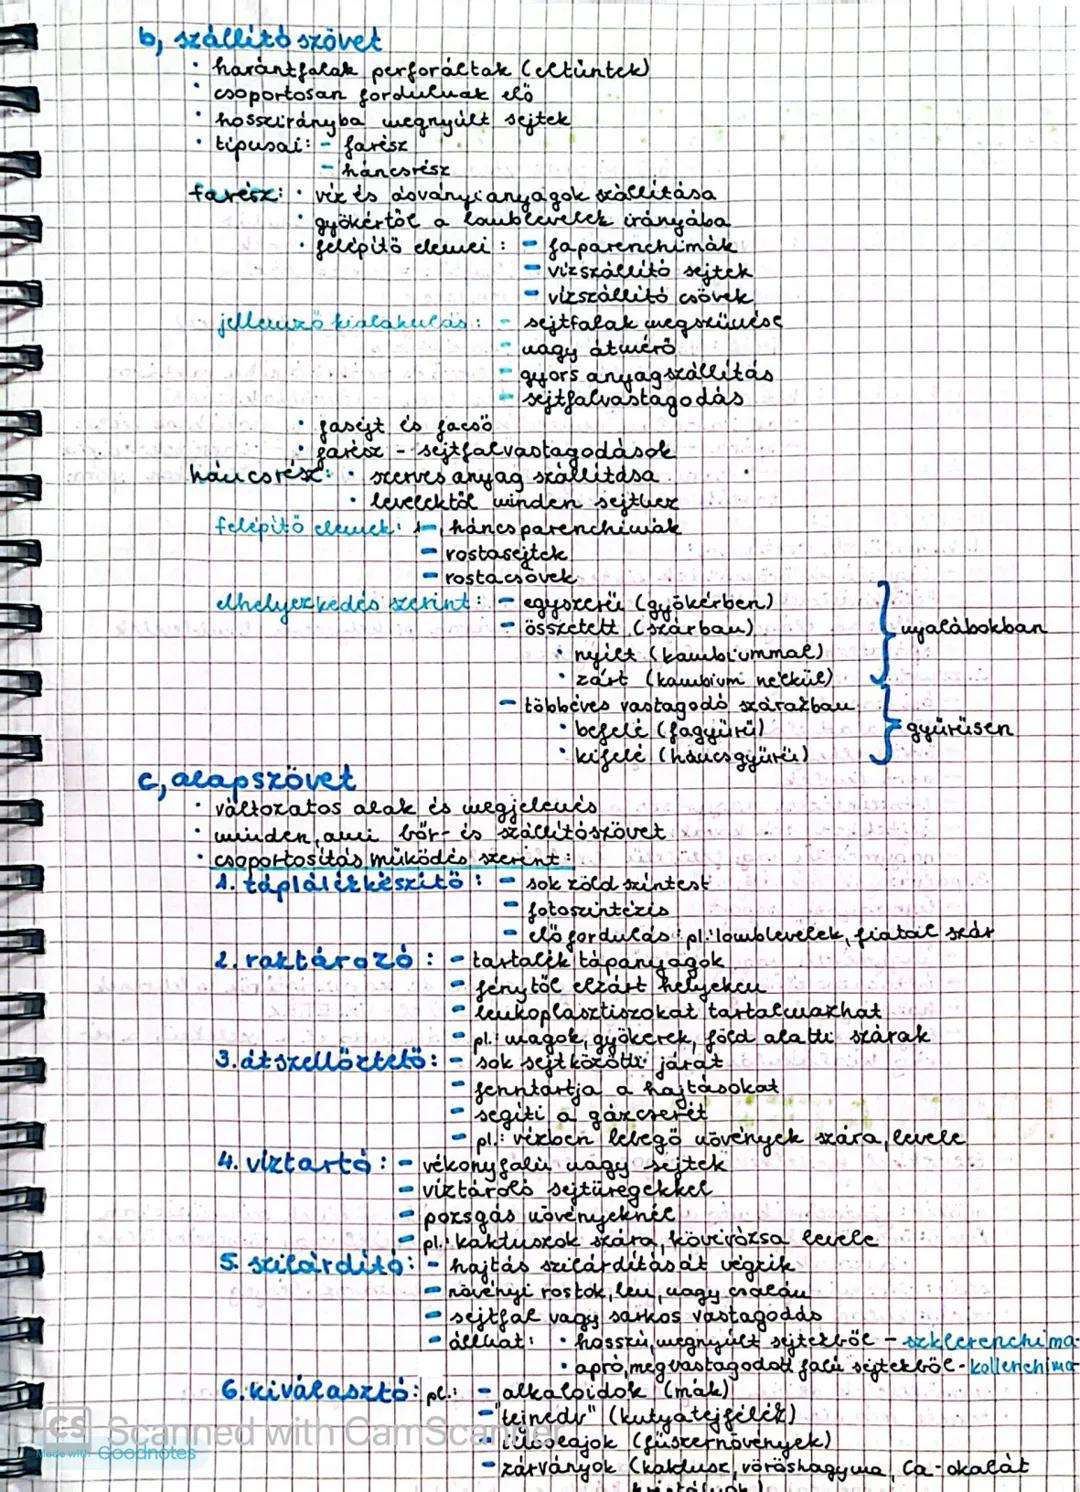 b, szállító szövet
· harántfalak perforáltak (eltűntek)
· csoportosan fordulnak elő
· hosszirányba megnyúlt sejtek
· típusai: - farész
- háncsrész
farész: · víz és ásványi anyagok szállítása
· gyökértől a lomblevelek irányába
· felépítő elemei: - faparenchimák
- vízszállító sejtek
- vízszállító csövek
jellemző kialakulás: - sejtfalak megszűnése
- nagy átmérő
- gyors anyagszállítás
- sejtfalvastagodás
· fasejt és facső
· farész - sejtfalvastagodások
háncsrész: · szerves anyag szállítása
· levelektől minden sejthez
felépítő elemek: - háncsparenchimák
- rostasejtek
- rostacsövek
elhelyezkedés szerint: - egyszerű (gyökérben)
- összetett (szárban)
nyalábokban
· nyílt (kambiummal)
· zárt (kambium nélkül)
- többéves vastagodó szárazban
· befelé (fagyűrű)
gyűrűsen
· kifelé (háncsgyűrű)
c, alapszövet
· változatos alak és megjelenés
· minden, ami bőr- és szállítószövet
· csoportosítás működés szerint:
1. táplálékkészítő: - sok zöld színtest
- fotoszintézis
- előfordulás: pl.: lomblevelek, fiatal szár
2. raktározó: - tartalék tápanyagok
- fénytől elzárt helyeken
- leukoplasztiszokat tartalmazhat
- pl.: magok, gyökerek, föld alatti szárak
3. átszellőztető: - sok sejtközötti járat
- fenntartja a hajtásokat
- segíti a gázcserét
- pl.: vízben lebegő növények szára, levele
4. víztartó: - vékonyfalú nagy sejtek
- víztároló sejtüregekkel
- pozsgás növényeknél
- pl.: kaktuszok szára, kövirózsa levele
5. szilárdító: - hajtás szilárdítását végzik
- növényi rostok, len, nagy csalán
- sejtfal vagy sarkos vastagodás
- állhat: · hosszú, megnyúlt sejtekből - szklerenchima
· apró, megvastagodott falú sejtekből - kollenchima
6. kiválasztó: pl.: - alkaloidok (mák)
- "teinedv" (kutyatejfélék)
- illóolajok (fűszernövények)
- zárványok (kaktusz, vöröshagyma, Ca-oxalát
kristályok)
CS Scanned with CamScanner
Made with Goodnotes